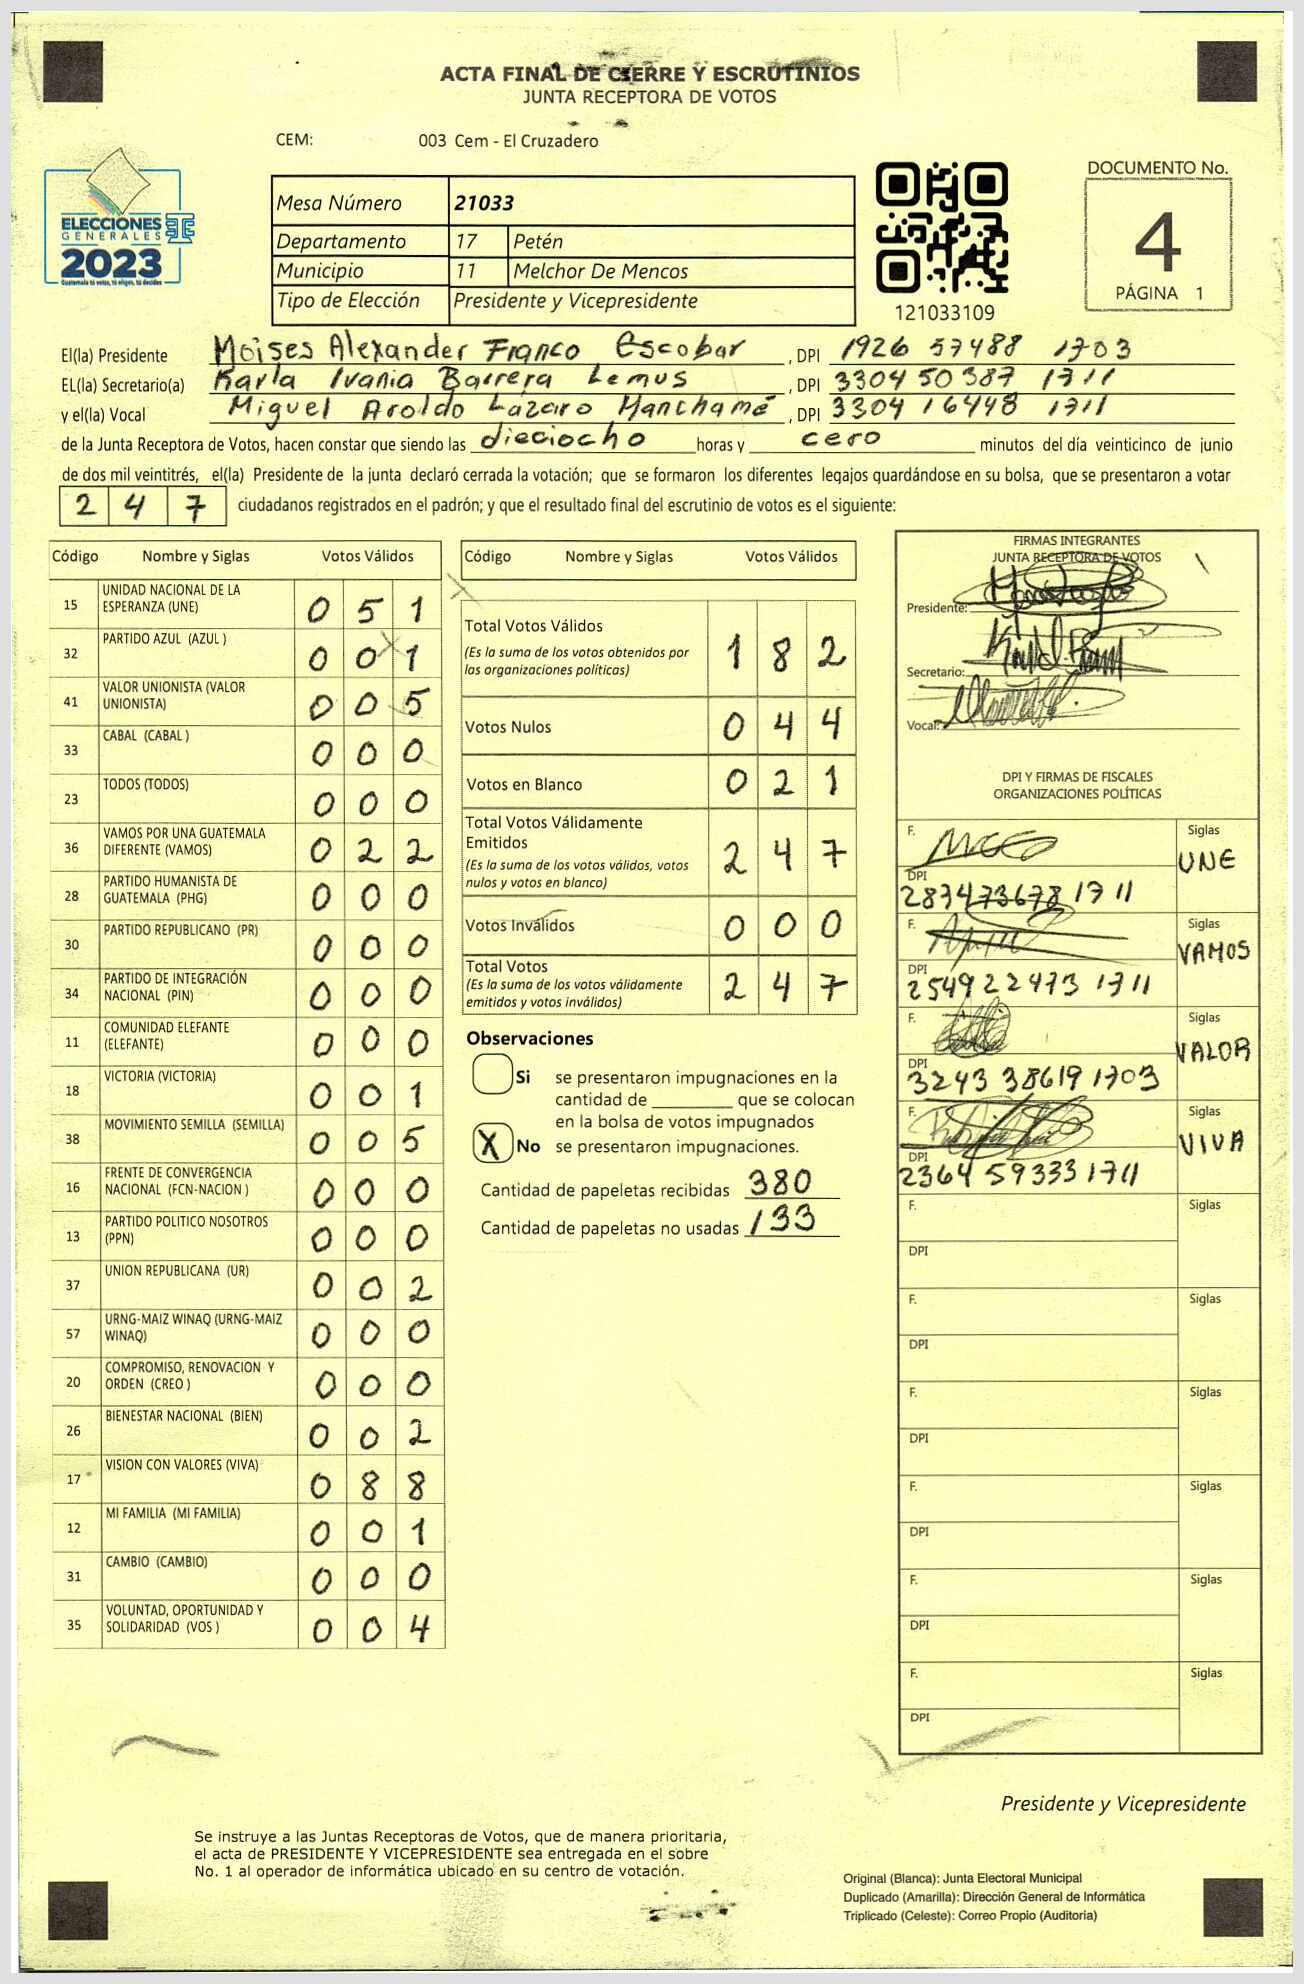 ACTA FINAL DE CIERRE Y ESCRUTINIOS
JUNTA RECEPTORA DE VOTOS
CEM: 003 Cem - El Cruzadero
ELECCIONES
GENERALES
2023
Guatemala tú votas, tú eliges, tú decides
Mesa Número 21033
Departamento 17 Petén
Municipio 11 Melchor De Mencos
Tipo de Elección Presidente y Vicepresidente
121033109
DOCUMENTO No.
4
PÁGINA 1
El(la) Presidente Moises Alexander Franco Escobar , DPI 1926 57488 1703
EL(la) Secretario(a) Karla Ivania Barrera Lemus , DPI 3304 50387 1711
y el(la) Vocal Miguel Aroldo Lázaro Manchamé , DPI 3304 16448 1711
de la Junta Receptora de Votos, hacen constar que siendo las dieciocho horas y cero minutos del día veinticinco de junio
de dos mil veintitrés, el(la) Presidente de la junta declaró cerrada la votación; que se formaron los diferentes legajos guardándose en su bolsa, que se presentaron a votar
247 ciudadanos registrados en el padrón; y que el resultado final del escrutinio de votos es el siguiente:
Código Nombre y Siglas Votos Válidos
15 UNIDAD NACIONAL DE LA ESPERANZA (UNE) 051
32 PARTIDO AZUL (AZUL ) 001
41 VALOR UNIONISTA (VALOR UNIONISTA) 005
33 CABAL (CABAL ) 000
23 TODOS (TODOS) 000
36 VAMOS POR UNA GUATEMALA DIFERENTE (VAMOS) 022
28 PARTIDO HUMANISTA DE GUATEMALA (PHG) 000
30 PARTIDO REPUBLICANO (PR) 000
34 PARTIDO DE INTEGRACIÓN NACIONAL (PIN) 000
11 COMUNIDAD ELEFANTE (ELEFANTE) 000
18 VICTORIA (VICTORIA) 001
38 MOVIMIENTO SEMILLA (SEMILLA) 005
16 FRENTE DE CONVERGENCIA NACIONAL (FCN-NACION ) 000
13 PARTIDO POLITICO NOSOTROS (PPN) 000
37 UNION REPUBLICANA (UR) 002
57 URNG-MAIZ WINAQ (URNG-MAIZ WINAQ) 000
20 COMPROMISO, RENOVACION Y ORDEN (CREO ) 000
26 BIENESTAR NACIONAL (BIEN) 002
17 VISION CON VALORES (VIVA) 088
12 MI FAMILIA (MI FAMILIA) 001
31 CAMBIO (CAMBIO) 000
35 VOLUNTAD, OPORTUNIDAD Y SOLIDARIDAD (VOS ) 004
Código Nombre y Siglas Votos Válidos
Total Votos Válidos 182
(Es la suma de los votos obtenidos por las organizaciones políticas)
Votos Nulos 044
Votos en Blanco 021
Total Votos Válidamente Emitidos 247
(Es la suma de los votos válidos, votos nulos y votos en blanco)
Votos Inválidos 000
Total Votos 247
(Es la suma de los votos válidamente emitidos y votos inválidos)
Observaciones
Si se presentaron impugnaciones en la
cantidad de ________ que se colocan
en la bolsa de votos impugnados
X No se presentaron impugnaciones.
Cantidad de papeletas recibidas 380
Cantidad de papeletas no usadas 133
FIRMAS INTEGRANTES
JUNTA RECEPTORA DE VOTOS
Presidente:
Secretario:
Vocal:
DPI Y FIRMAS DE FISCALES
ORGANIZACIONES POLÍTICAS
F. Siglas
UNE
DPI
287473678 1711
F. Siglas
VAMOS
DPI
2549 22473 1711
F. Siglas
VALOR
DPI
3243 38619 1703
F. Siglas
VIVA
DPI
2364 59333 1711
F. Siglas
DPI
F. Siglas
DPI
F. Siglas
DPI
F. Siglas
DPI
F. Siglas
DPI
F. Siglas
DPI
Presidente y Vicepresidente
Se instruye a las Juntas Receptoras de Votos, que de manera prioritaria,
el acta de PRESIDENTE Y VICEPRESIDENTE sea entregada en el sobre
No. 1 al operador de informática ubicado en su centro de votación.
Original (Blanca): Junta Electoral Municipal
Duplicado (Amarilla): Dirección General de Informática
Triplicado (Celeste): Correo Propio (Auditoria)